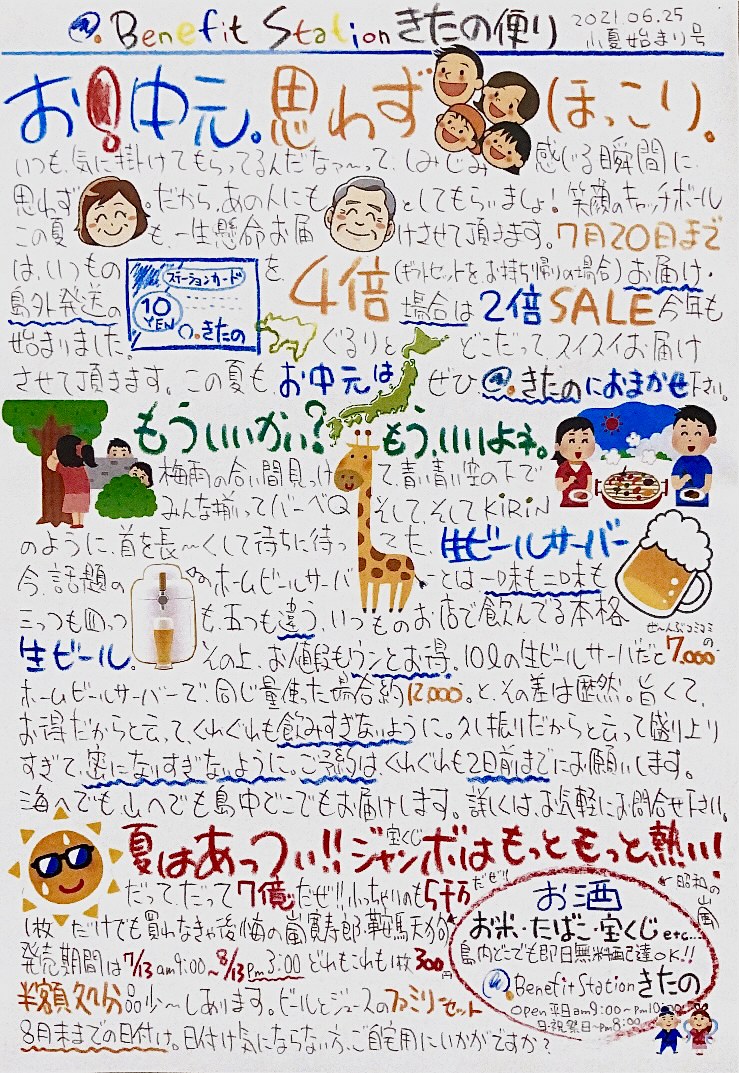 @. Benefit Station きたの便り
2021.06.25
小夏始まり号
お!中元。思わず ほっこり。
いつも、気に掛けてもらってるんだなァ〜って、しみじみ 感じる瞬間に、
思わず 。だから、あの人にも としてもらいましょ!笑顔のキャッチボール
この夏 も、一生懸命お届 けさせて頂きます。7月20日まで
は、いつもの を、4倍(ギフトセットを、お持ち帰りの場合)お届け・
ステーションカード
10 YEN @.きたの
島外発送の 場合は2倍SALE今年も
始まりました。 ぐるりと どこだって、スイスイお届け
させて頂きます。この夏も、お中元は、ぜひ@.きたのにおまかせ下さい。
もういいかい? もういいよネ。
梅雨の合い間見っけ て、青い青い空の下で
みんな揃ってバーベQ そして、そしてKiRiN
のように、首を長〜くして待ちに待っ てた、生ビールサーバー
今、話題の のホームビールサーバ ーとは一味も二味も
三つも四っつ も、五つも違う、いつものお店で飲んでる本格
生ビール。 その上、お値段もウンとお得。10ℓの生ビールサーバだと7,000
ぜ〜んぶコミコミの
ホームビールサーバーで、同じ量使った場合約12,000。と、その差は歴然。旨くて、
お得だからと云って、くれぐれも飲みすぎないように。久し振りだからと云って盛り上り
すぎて、密になりすぎないように。ご予約は、くれぐれも2日前までにお願いします。
海へでも、山へでも島中どこでもお届けします。詳しくは、お気軽にお問合せ下さい。
夏はあっつぃ!!ジャンボはもっともっと、熱い!
宝くじ
だってだって7億だぜ!!小っちゃいのも5千万だぜ!!
1枚 だけでも買わなきゃ後悔の嵐寛寿郎・鞍馬天狗
昭和の嵐
発売期間は7/13am9:00〜8/13pm3:00どれもこれも1枚300円
半額処分品少〜しあります。ビールとジュースのファミリーセット
8月末までの日付け。日付け気にならない方、ご自宅用にいかがですか?
お酒
お米・たばこ・宝くじetc...
島内どこでも即日無料配達OK!!
@.Benefit Station きたの
open平日am9:00〜pm10:00
日・祝祭日〜pm8:00